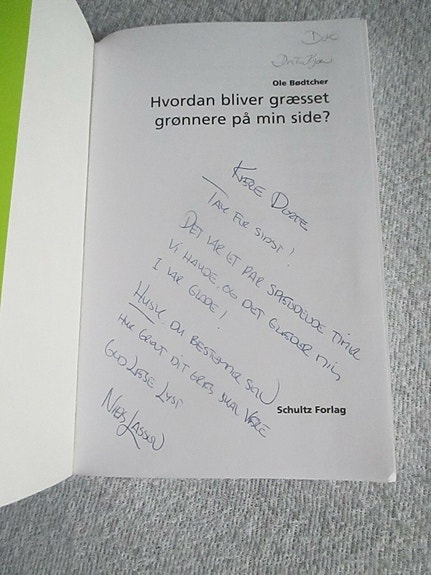 Ole Bødtcher
Hvordan bliver græsset
grønnere på min side?
Kære Dorte
Tak for sidst!
Det var et par spændende timer
vi havde, og det glæder mig
I var glade!
Husk du bestemmer selv
hvor grønt dit græs skal være
God Læse Lyst
Schultz Forlag